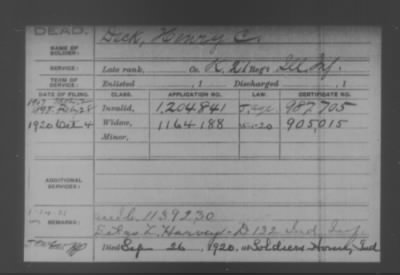 DEAD.
NAME OF SOLDIER: Dick, Henry C.
SERVICE: Late rank, Co. K, 21 Reg't Ill Inf.
TERM OF SERVICE: Enlisted , 1 Discharged , 1
DATE OF FILING. CLASS. APPLICATION NO. LAW. CERTIFICATE NO.
Invalid, 1,204,841 987,705
1920 Oct 4 Widow, 1164188 905,015
Minor,
ADDITIONAL SERVICES:
1139230
REMARKS: Silas L. Harvey D 132 Ind. Inf.
Died Sep 26, 1920, at Soldiers Home, Ind